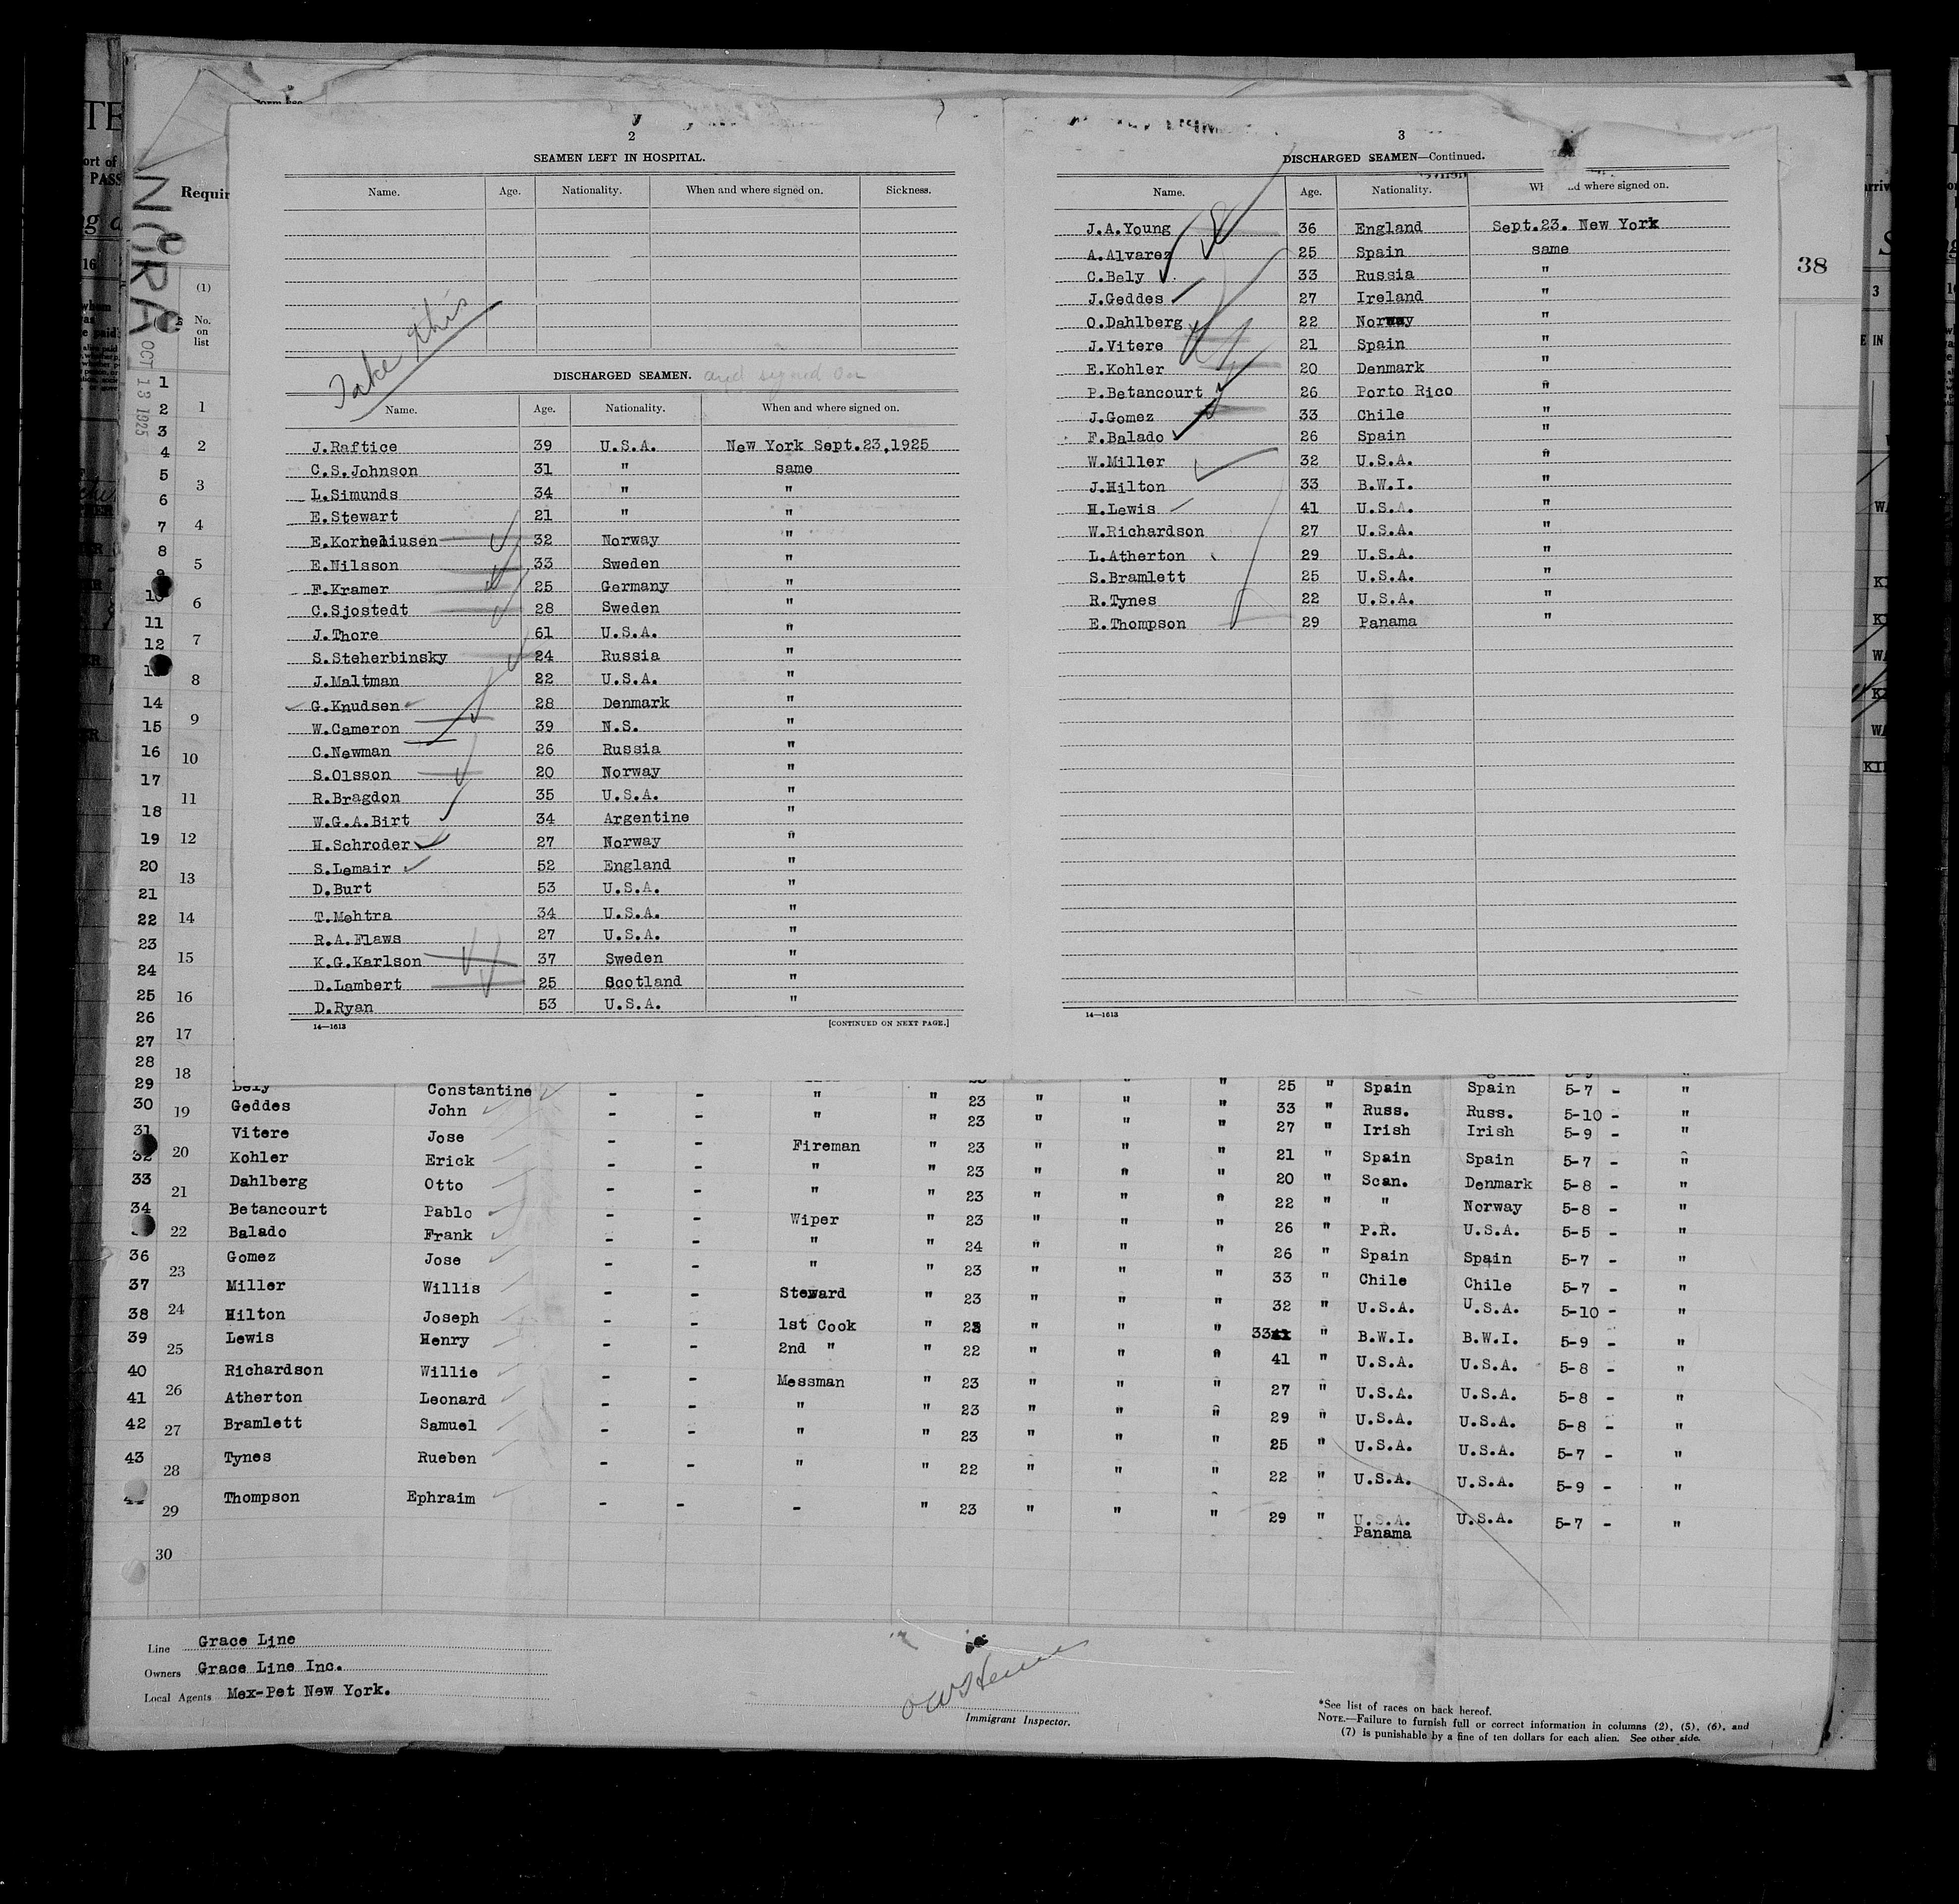 2
SEAMEN LEFT IN HOSPITAL.
Name. Age. Nationality. When and where signed on. Sickness.
Take this
DISCHARGED SEAMEN. and signed on
Name. Age. Nationality. When and where signed on.
J.Raftice 39 U.S.A. New York Sept.23,1925
C.S.Johnson 31 " same
L.Simunds 34 " "
E.Stewart 21 " "
E.Korneliusen 32 Norway "
E.Nilsson 33 Sweden "
F.Kramer 25 Germany "
C.Sjostedt 28 Sweden "
J.Thore 61 U.S.A. "
S.Steherbinsky 24 Russia "
J.Maltman 22 U.S.A. "
G.Knudsen 28 Denmark "
W.Cameron 39 N.S. "
C.Newman 26 Russia "
S.Olsson 20 Norway "
R.Bragdon 35 U.S.A. "
W.G.A.Birt 34 Argentine "
H.Schroder 27 Norway "
S.Lemair 52 England "
D.Burt 53 U.S.A. "
T.Mehtra 34 U.S.A. "
R.A.Flaws 27 U.S.A. "
K.G.Karlson 37 Sweden "
D.Lambert 25 Scotland "
D.Ryan 53 U.S.A. "
14—1613 [CONTINUED ON NEXT PAGE.]
3
DISCHARGED SEAMEN—Continued.
Name. Age. Nationality. Wh d where signed on.
J.A.Young 36 England Sept.23. New York
A.Alvarez 25 Spain same
C.Bely 33 Russia "
J.Geddes 27 Ireland "
O.Dahlberg 22 Norway "
J.Vitere 21 Spain "
E.Kohler 20 Denmark "
P.Betancourt 26 Porto Rico "
J.Gomez 33 Chile "
F.Balado 26 Spain "
W.Miller 32 U.S.A. "
J.Hilton 33 B.W.I. "
H.Lewis 41 U.S.A. "
W.Richardson 27 U.S.A. "
L.Atherton 29 U.S.A. "
S.Bramlett 25 U.S.A. "
R.Tynes 22 U.S.A. "
E.Thompson 29 Panama "
14—1613
38
NORA
OCT 13 1925
Requir
(1)
No. on list
1 2 3 4 5 6 7 8 9 10 11 12 13 14 15 16 17 18 19 20 21 22 23 24 25 26 27 28
1 2 3 4 5 6 7 8 9 10 11 12 13 14 15 16 17 18
29 Bely Constantine - - " " 23 " " " 25 " Spain Spain 5-7 - "
30 19 Geddes John - - " " 23 " " " 33 " Russ. Russ. 5-10 - "
31 Vitere Jose - - Fireman " 23 " " " 27 " Irish Irish 5-9 - "
32 20 Kohler Erick - - " " 23 " " " 21 " Spain Spain 5-7 - "
33 21 Dahlberg Otto - - " " 23 " " " 20 " Scan. Denmark 5-8 - "
34 Betancourt Pablo - - Wiper " 23 " " " 22 " " Norway 5-8 - "
22 Balado Frank - - " " 24 " " " 26 " P.R. U.S.A. 5-5 - "
36 Gomez Jose - - " " 23 " " " 26 " Spain Spain 5-7 - "
23 33 " Chile Chile 5-7 - "
37 Miller Willis - - Steward " 23 " " " 32 " U.S.A. U.S.A. 5-10 - "
38 24 Hilton Joseph - - 1st Cook " 23 " " " 33 " B.W.I. B.W.I. 5-9 - "
39 25 Lewis Henry - - 2nd " " 22 " " " 41 " U.S.A. U.S.A. 5-8 - "
40 Richardson Willie - - Messman " 23 " " " 27 " U.S.A. U.S.A. 5-8 - "
41 26 Atherton Leonard - - " " 23 " " " 29 " U.S.A. U.S.A. 5-8 - "
42 27 Bramlett Samuel - - " " 23 " " " 25 " U.S.A. U.S.A. 5-7 - "
43 28 Tynes Rueben - - " " 22 " " " 22 " U.S.A. U.S.A. 5-9 - "
29 Thompson Ephraim - - - " 23 " " " 29 " U.S.A. U.S.A. 5-7 - "
Panama
30
Line Grace Line
Owners Grace Line Inc.
Local Agents Mex-Pet New York.
Immigrant Inspector.
*See list of races on back hereof.
NOTE.—Failure to furnish full or correct information in columns (2), (5), (6), and
(7) is punishable by a fine of ten dollars for each alien. See other side.